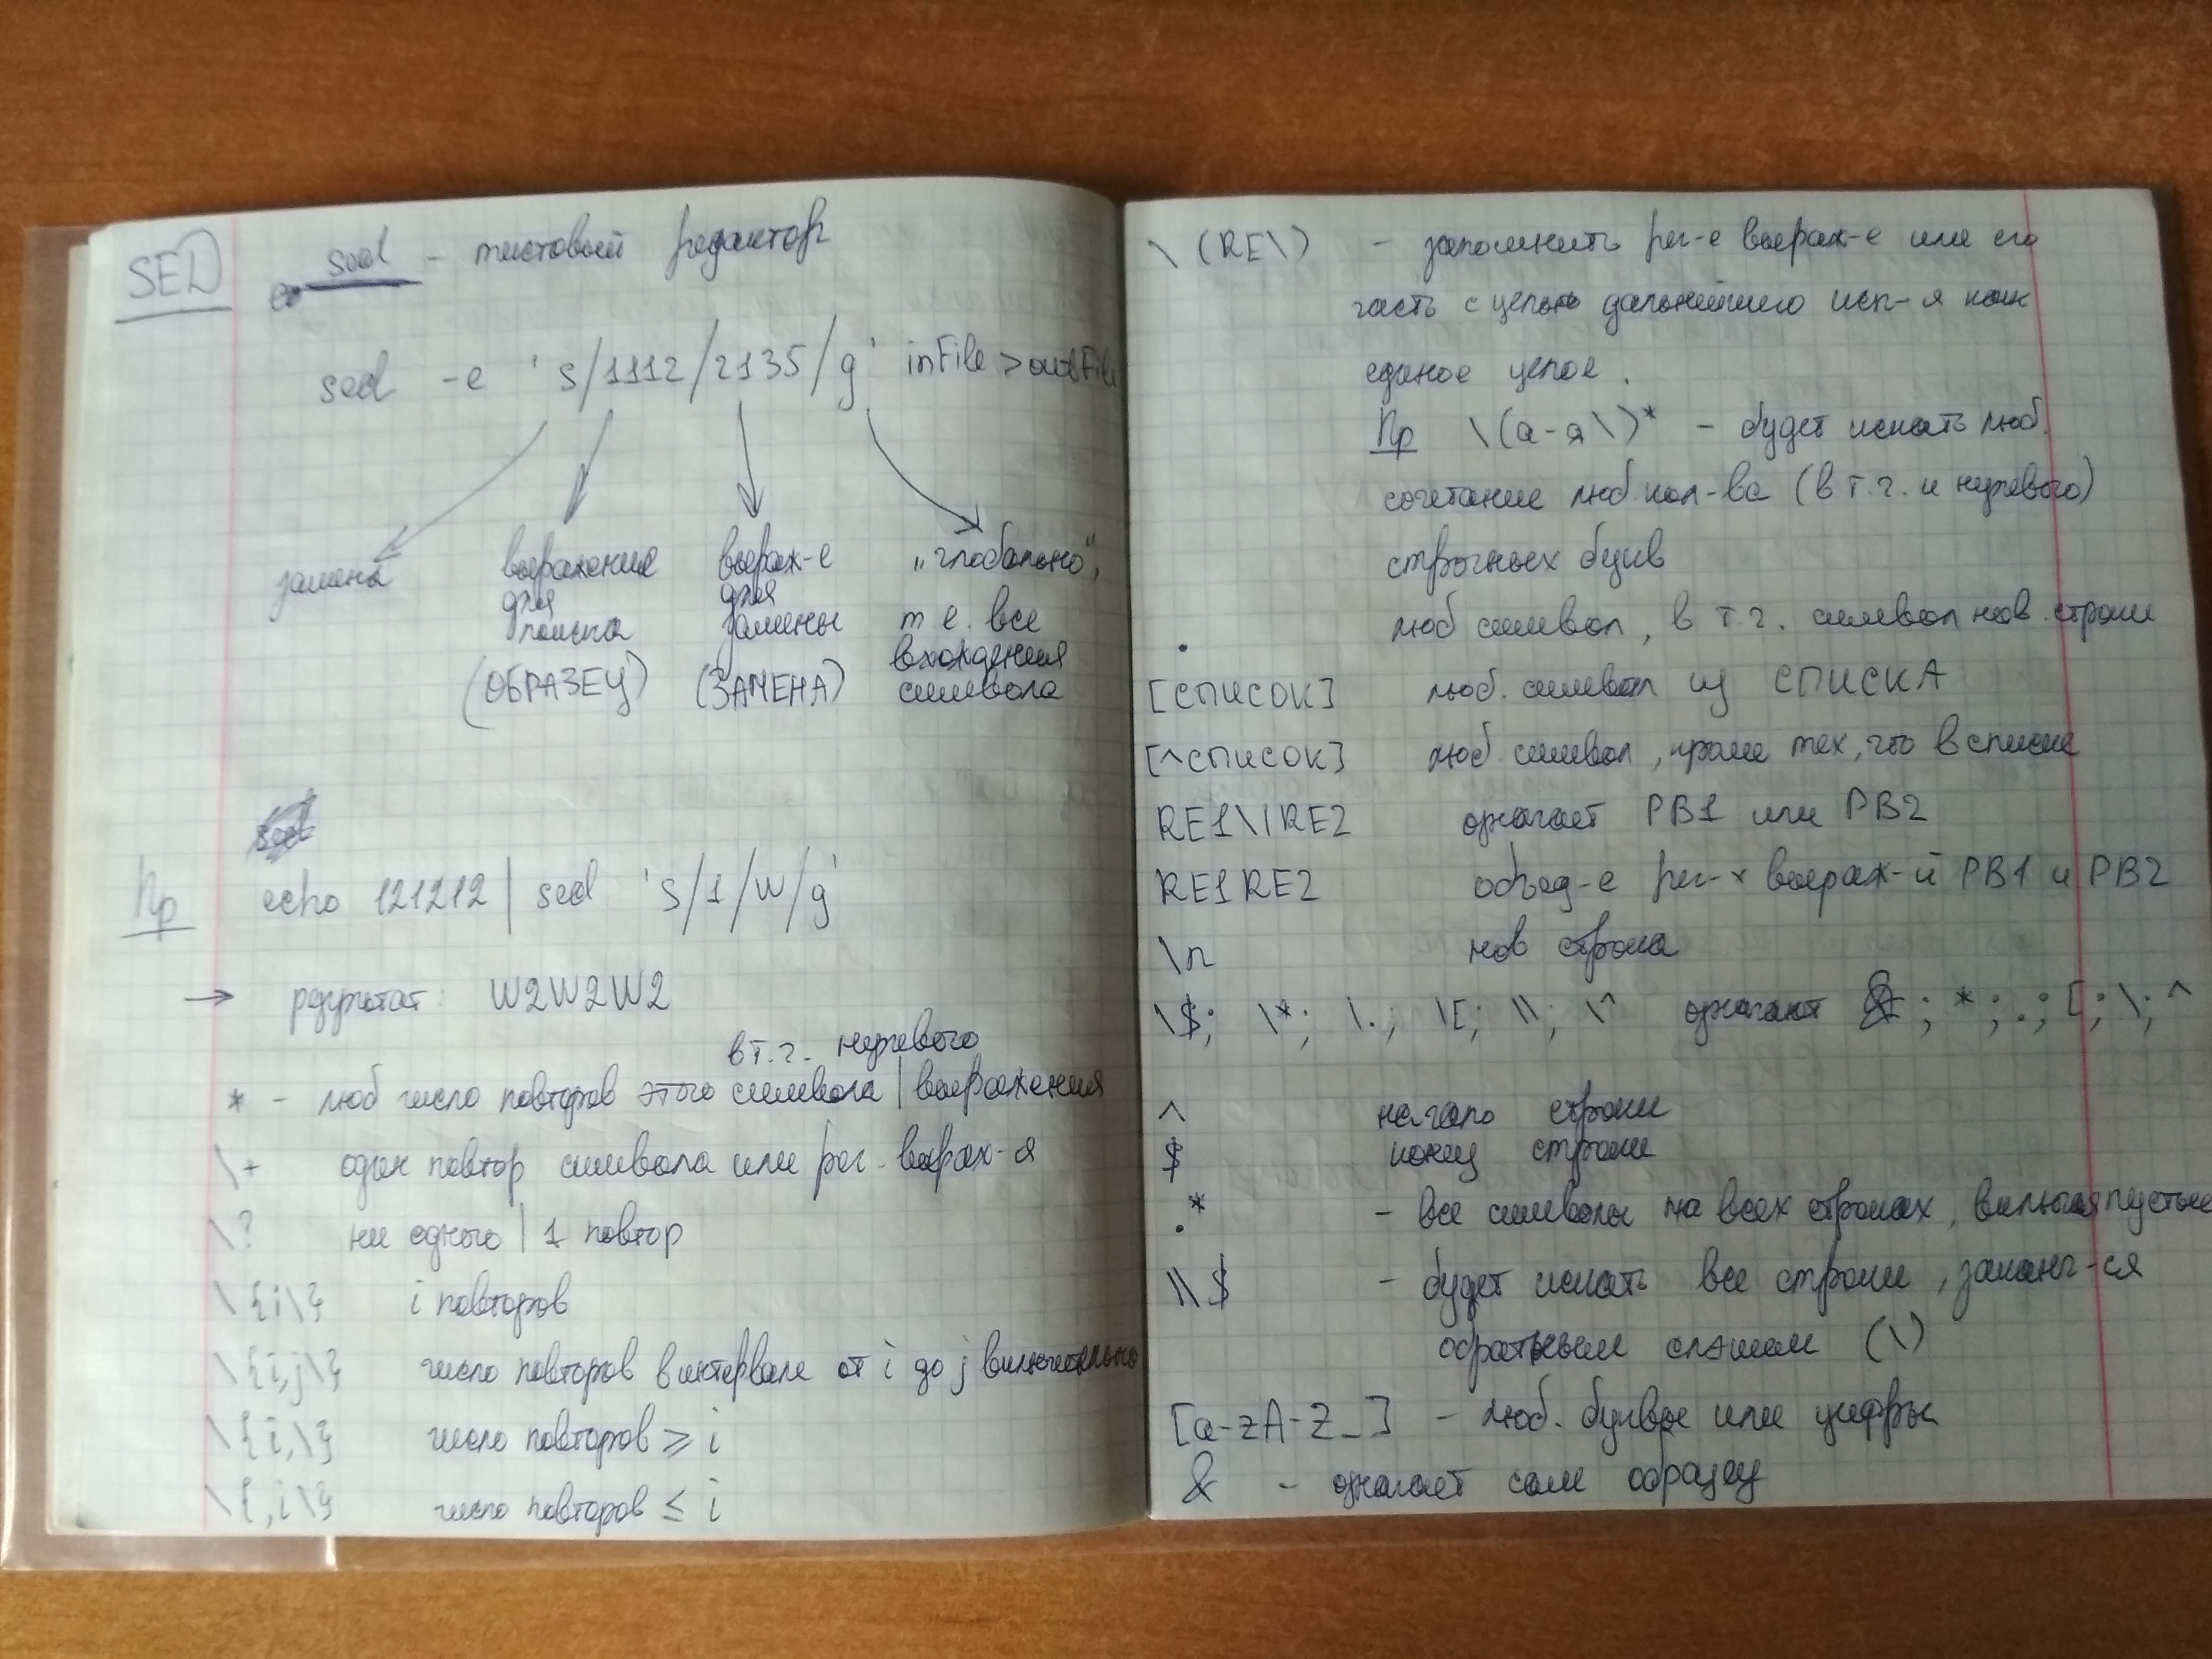 SED
sed - текстовый редактор
sed -e 's/1112/2135/g' inFile > outFile
замена
выражение для поиска (ОБРАЗЕЦ)
выраж-е для замены (ЗАМЕНА)
„глобально", т е. все вхождения символа
Пр echo 121212 | sed 's/1/W/g'
→ результат: W2W2W2
в т.ч. нулевого
* - люб число повторов этого символа | выражения
\+ один повтор символа или рег. выраж-я
\? ни одного | 1 повтор
\{i\} i повторов
\{i,j\} число повторов в интервале от i до j включительно
\{i,\} число повторов ≥ i
\{,i\} число повторов ≤ i
\(RE\) - запомнить рег-е выраж-е или его
часть с целью дальнейшего исп-я как
единое целое.
Пр \(а-я\)* - будет искать люб.
сочетание люб. кол-ва (в т.ч. и нулевого)
строчных букв
. люб символ, в т.ч. символ нов. строки
[СПИСОК] люб. символ из СПИСКА
[^СПИСОК] люб. символ, кроме тех, что в списке
RE1\|RE2 означает РВ1 или РВ2
RE1RE2 объед-е рег-х выраж-й РВ1 и РВ2
\n нов строка
\$; \*; \.; \[; \\; \^ означают $; *; .; [; \; ^
^ начало строки
$ конец строки
.* - все символы на всех строках, включая пустые
\\$ - будет искать все строки, заканч-ся
обратным слэшем (\)
[a-zA-Z_] - люб. буквы или цифры
& - означает сам образец